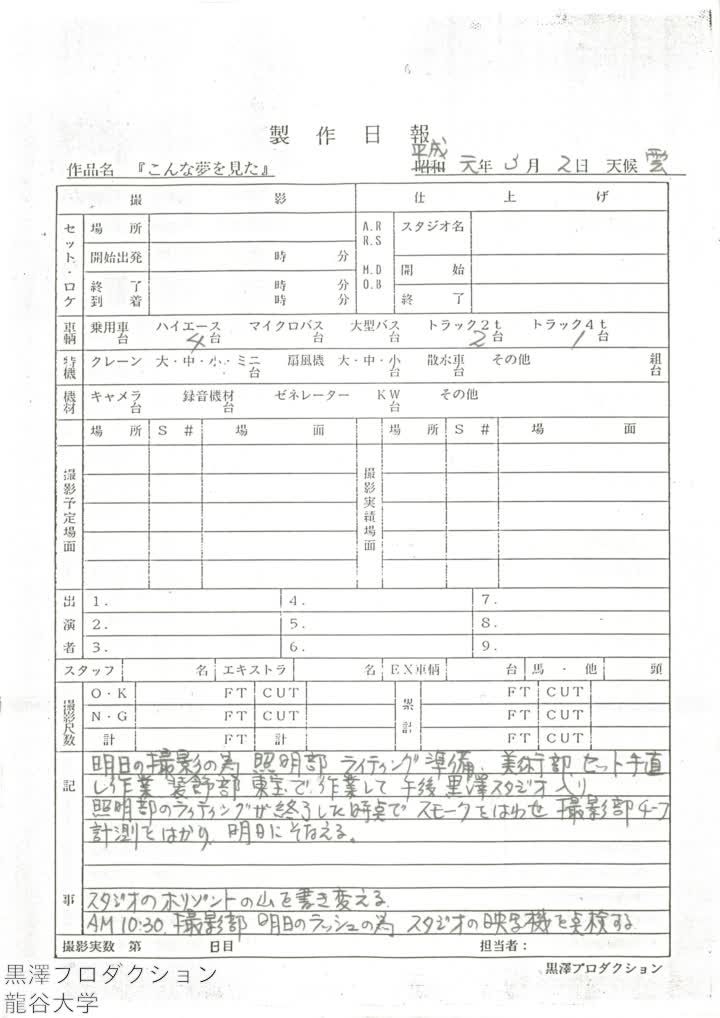 製作日報
作品名 『こんな夢を見た』 昭和 平成 元年 3月 2日 天候 雲
撮影 仕上げ
セット・ロケ 場所 A.R R.S M.D O.B スタジオ名
開始出発 時 分 開始
終了 時 分 終了
到着 時 分
車輌 乗用車 台 ハイエース 4台 マイクロバス 台 大型バス 台 トラック2t 2台 トラック4t 1台
特機 クレーン 大・中・小・ミニ 台 扇風機 大・中・小 台 散水車 台 その他 組 台
機材 キャメラ 台 録音機材 台 ゼネレーター KW 台 その他
場所 S# 場面 場所 S# 場面
撮影予定場面 撮影実績場面
出演者
1. 4. 7.
2. 5. 8.
3. 6. 9.
スタッフ 名 エキストラ 名 EX車輌 台 馬・他 頭
撮影尺数 O・K FT CUT 累計 FT CUT
N・G FT CUT FT CUT
計 FT 計 FT CUT
記事
明日の撮影の為 照明部 ライティング準備、美術部 セット手直
し作業 装飾部 東宝で作業して 午後 黒澤スタジオ入り
照明部のライティングが終了した時点で スモークをはわせ 撮影部
計測をはかり、明日にそなえる。
スタジオのホリゾントの山を書き変える
AM 10:30 撮影部 明日のラッシュの為 スタジオの映写機を点検する
撮影実数 第 日目 担当者：
黒澤プロダクション
黒澤プロダクション
龍谷大学